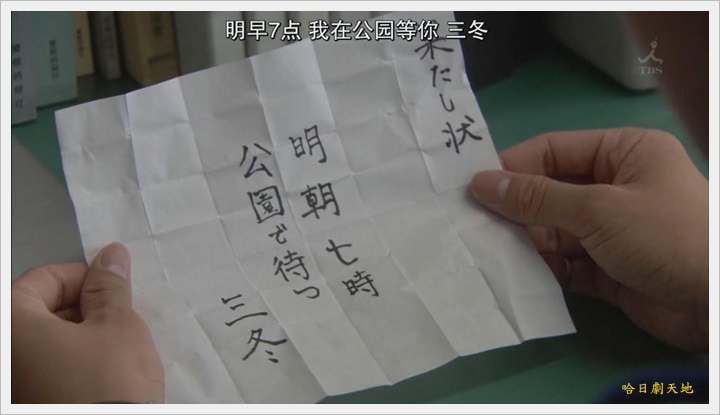 明早7点 我在公园等你 三冬
TBS
果たし状
明朝七時
公園で待つ
三冬
哈日劇天地